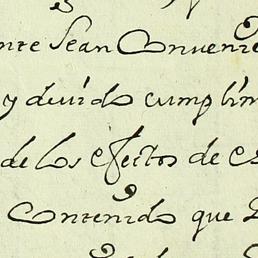 nte sean Conveni
y devido cumplim
de los efectos de e
Contenido que